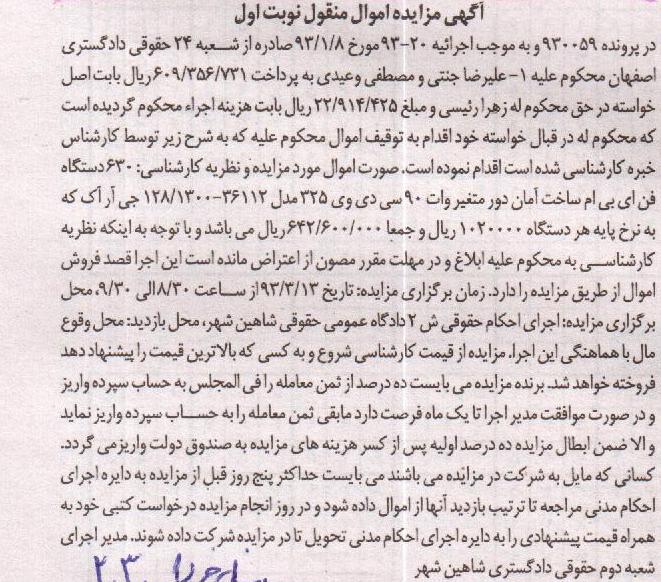 آگهی مزایده اموال منقول نوبت اول
در پرونده ۹۳۰۰۵۹ و به موجب اجرائیه ۲۰-۹۳ مورخ ۹۳/۱/۸ صادره از شعبه ۲۴ حقوقی دادگستری
اصفهان محکوم علیه ۱- علیرضا جنتی و مصطفی وعیدی به پرداخت ۶۰۹/۳۵۶/۷۳۱ ریال بابت اصل
خواسته در حق محکوم له زهرا رئیسی و مبلغ ۲۲/۹۱۴/۴۲۵ ریال بابت هزینه اجراء محکوم گردیده است
که محکوم له در قبال خواسته خود اقدام به توقیف اموال محکوم علیه که به شرح زیر توسط کارشناس
خبره کارشناسی شده است اقدام نموده است. صورت اموال مورد مزایده و نظریه کارشناسی: ۶۳۰ دستگاه
فن ای بی ام ساخت آمان دور متغیر وات ۹۰ سی دی وی ۳۲۵ مدل ۳۶۱۱۲-۱۲۸/۱۳۰۰ جی آر آک که
به نرخ پایه هر دستگاه ۱۰۲۰۰۰۰ ریال و جمعا ۶۴۲/۶۰۰/۰۰۰ ریال می باشد و با توجه به اینکه نظریه
کارشناسی به محکوم علیه ابلاغ و در مهلت مقرر مصون از اعتراض مانده است این اجرا قصد فروش
اموال از طریق مزایده را دارد. زمان برگزاری مزایده: تاریخ ۹۳/۳/۱۳ از ساعت ۸/۳۰ الی ۹/۳۰، محل
برگزاری مزایده: اجرای احکام حقوقی ش ۲ دادگاه عمومی حقوقی شاهین شهر، محل بازدید: محل وقوع
مال با هماهنگی این اجرا. مزایده از قیمت کارشناسی شروع و به کسی که بالاترین قیمت را پیشنهاد دهد
فروخته خواهد شد. برنده مزایده می بایست ده درصد از ثمن معامله را فی المجلس به حساب سپرده واریز
و در صورت موافقت مدیر اجرا تا یک ماه فرصت دارد مابقی ثمن معامله را به حساب سپرده واریز نماید
و الا ضمن ابطال مزایده ده درصد اولیه پس از کسر هزینه های مزایده به صندوق دولت واریز می گردد.
کسانی که مایل به شرکت در مزایده می باشند می بایست حداکثر پنج روز قبل از مزایده به دایره اجرای
احکام مدنی مراجعه تا ترتیب بازدید آنها از اموال داده شود و در روز انجام مزایده درخواست کتبی خود به
همراه قیمت پیشنهادی را به دایره اجرای احکام مدنی تحویل تا در مزایده شرکت داده شوند. مدیر اجرای
شعبه دوم حقوقی دادگستری شاهین شهر